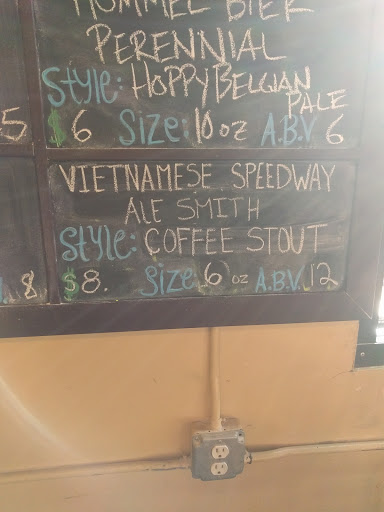 HOMMEL BIER
PERENNIAL
Style: HOPPY BELGIAN
PALE
5 $6 Size: 10 oz A.B.V. 6
VIETNAMESE SPEEDWAY
ALE SMITH
Style: COFFEE STOUT
8 $8. Size: 6 oz A.B.V. 12